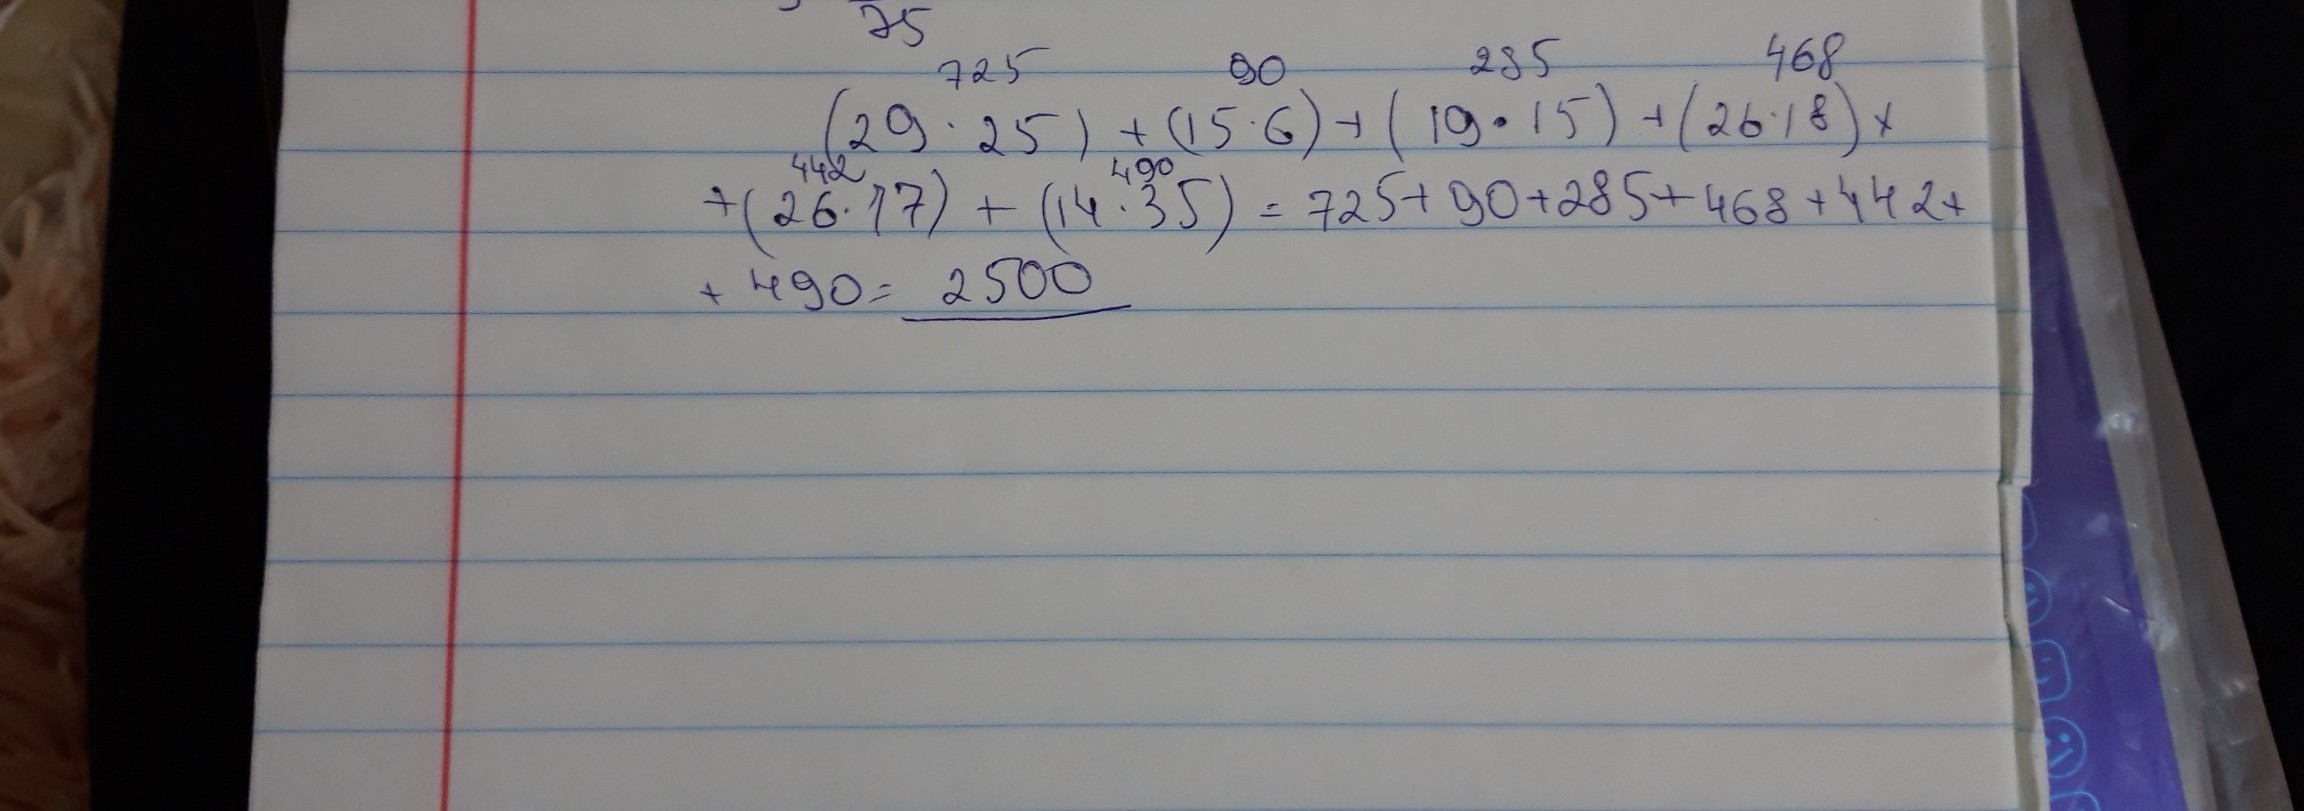 75
725 90 285 468
(29·25)+(15·6)+(19·15)+(26·18)+
442 490
+(26·17)+(14·35)=725+90+285+468+442+
+490=2500